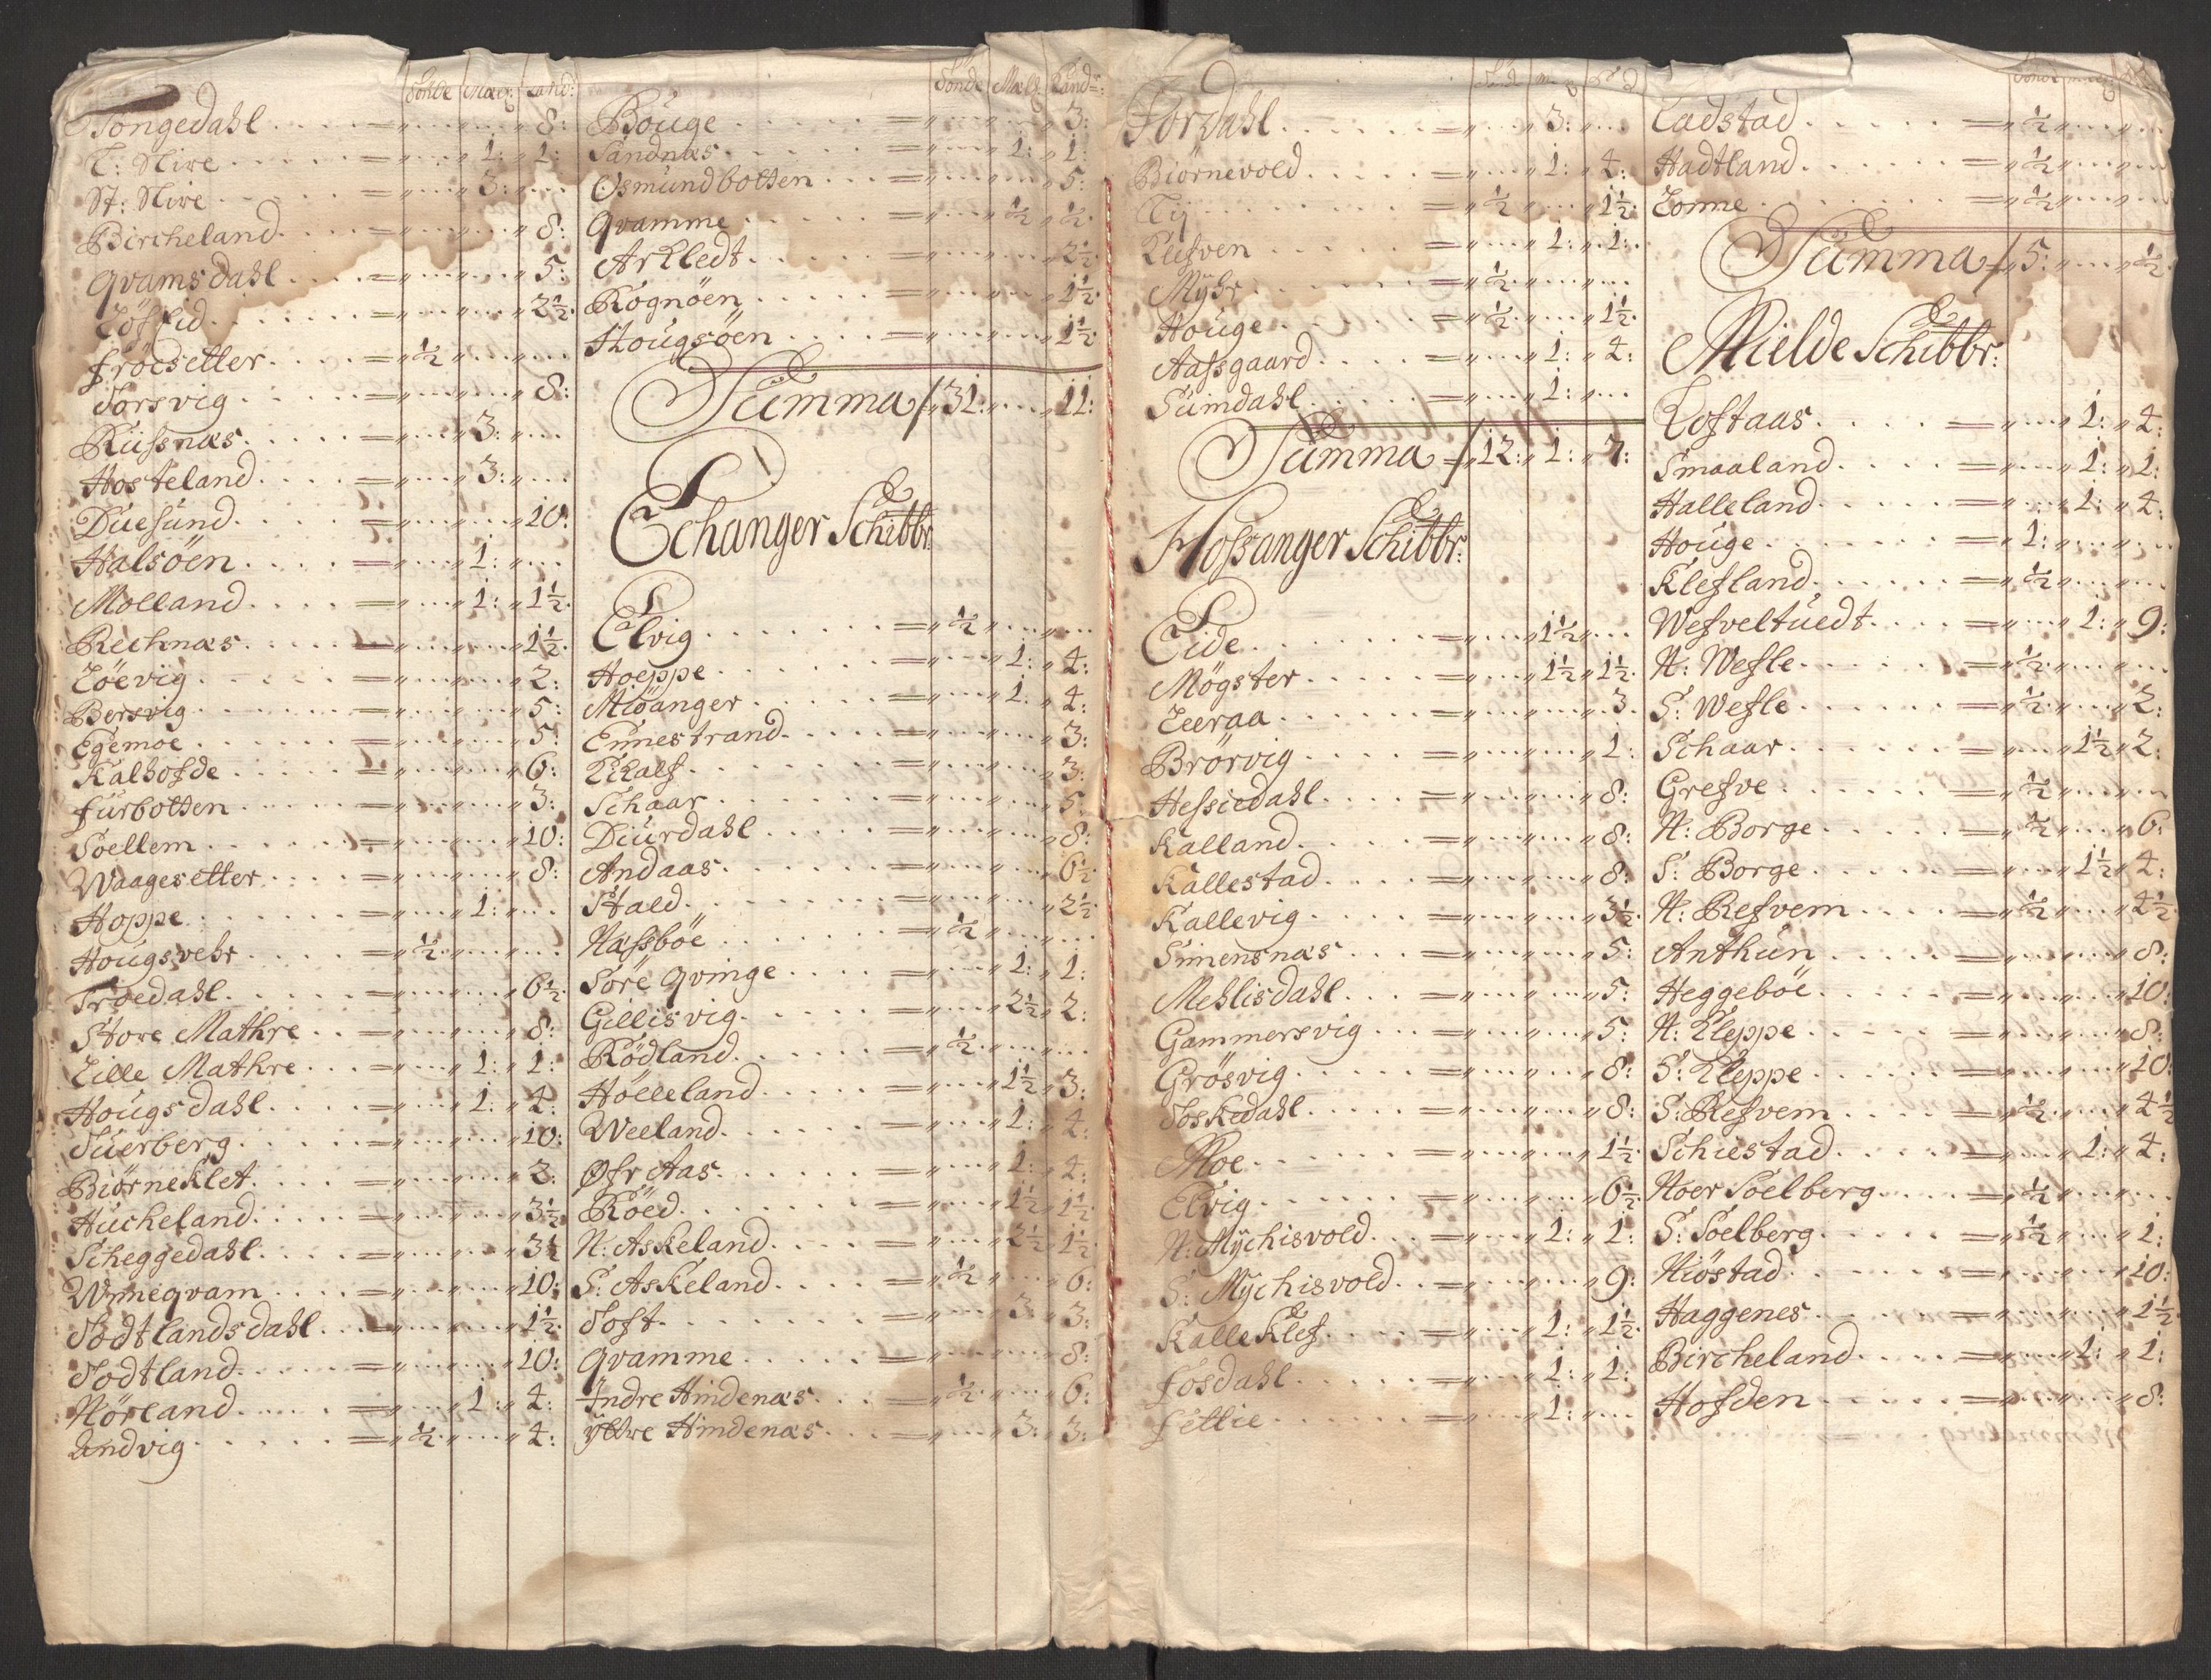 Tonde Mæl: Kand:
Tongedahl 8:
L: Nire 1: 1:
St: Nire 3:
Bircheland 8:
Qvamsdahl 5:
2½:
Fröesetter ½
Torsvig 8:
Russnæs 3:
Hosteland 3:
Duesund 10:
Halsöen 1:
Molland 1: 1½:
Rechnæs 1½
Löevig 2:
Bersvig 5:
Egemoe 5:
Kalhofde 6:
furbotten 3:
Soellem 10:
Waagesetter 8:
Hoppe 1:
Hougsvehr ½
Troedahl 6½
Store Mathre 8:
Lille Mathre 1: 1:
Hougsdahl 1: 4:
Tuerberg 10:
Biörneklet 3:
Hucheland 3½
Scheggedahl 3½
Winneqvam 10:
Todtlandsdahl 1½
Todtland 10:
Nörland 1: 4:
Andvig ½ 4:
Tonde Mæl: Kand:
Bouge 3:
Sandnæs 1: 1:
Osmundbotten 5:
Qvamme ½ ½
Arkledt 2½
Rognöen 1½
Hougsöen 1½
Summa 31: 11:
Echanger Schibbr:
Elvig ½
Hoeppe 1: 4:
Miöanger 1: 4:
Ennestrand 3:
Kalf 3:
Schaar 5:
Diurdahl 8:
Andaas 6½
Hald 2½
Næssböe ½
Söre Qvinge 1: 1:
Gillisvig 2½ 2:
Rödland ½
Hölleland 1½ 3:
Weeland 1: 4:
Øfr Aas 1: 4:
Röed 1½ 1½
N: Askeland 2½ 1½
S: Askeland ½ 6:
Toft 3: 3:
Qvamme 8:
Indre Hindenæs ½ 6:
ÿttre Hindenæs 3: 3:
Fordahl 3:
Biörnevold 1: 4:
Tÿ ½ 1½
Klefven 1: 1:
Mÿhr ½
Houge ½ 1½
Aassgaard 1: 4:
Sümdahl 1:
Summa 12: 1: 7:
Hossanger Schibbr:
Eide 1½
Mögster 1½ 1½
Leeraa 3
Brörvig 1:
Hessiedahl 8:
Kalland 8:
Kallestad 8:
Kallevig 3½
Simensnæs 5:
Mehlisdahl 5:
Gammersvig 5:
Grösvig 8:
Toskedahl 8:
Moe 1½
Elvig 6½
N: Mÿchisvold 1: 1:
S: Mÿchisvold 9:
Kalleklef 1: 1½
fosdahl 1: 1:
fettie 1:
Ladstad ½
Hadtland ½
Lonne ½
Summa 5: ½
Mielde Schibbr:
Loftaas 1: 4:
Smaaland 1: 1:
Halleland 1: 4:
Houge 1:
Klefland ½
Wefveltuedt 1: 9:
N: Wefle ½
S: Wefle ½ 2:
Schaar 1½ 2:
Grefve ½
N: Borge ½ 6:
S: Borge 1½ 4:
N: Refvem ½ 4½
Anthun 8:
Heggeböe 10:
N: Kleppe 8:
S: Kleppe 10:
S: Refvem ½ 4½
Schiestad 1: 4:
Noer Soelberg ½
S: Soelberg ½ 1:
Niöstad 10:
Haggenes 1½
Bircheland 1: 1:
Hofden 8: